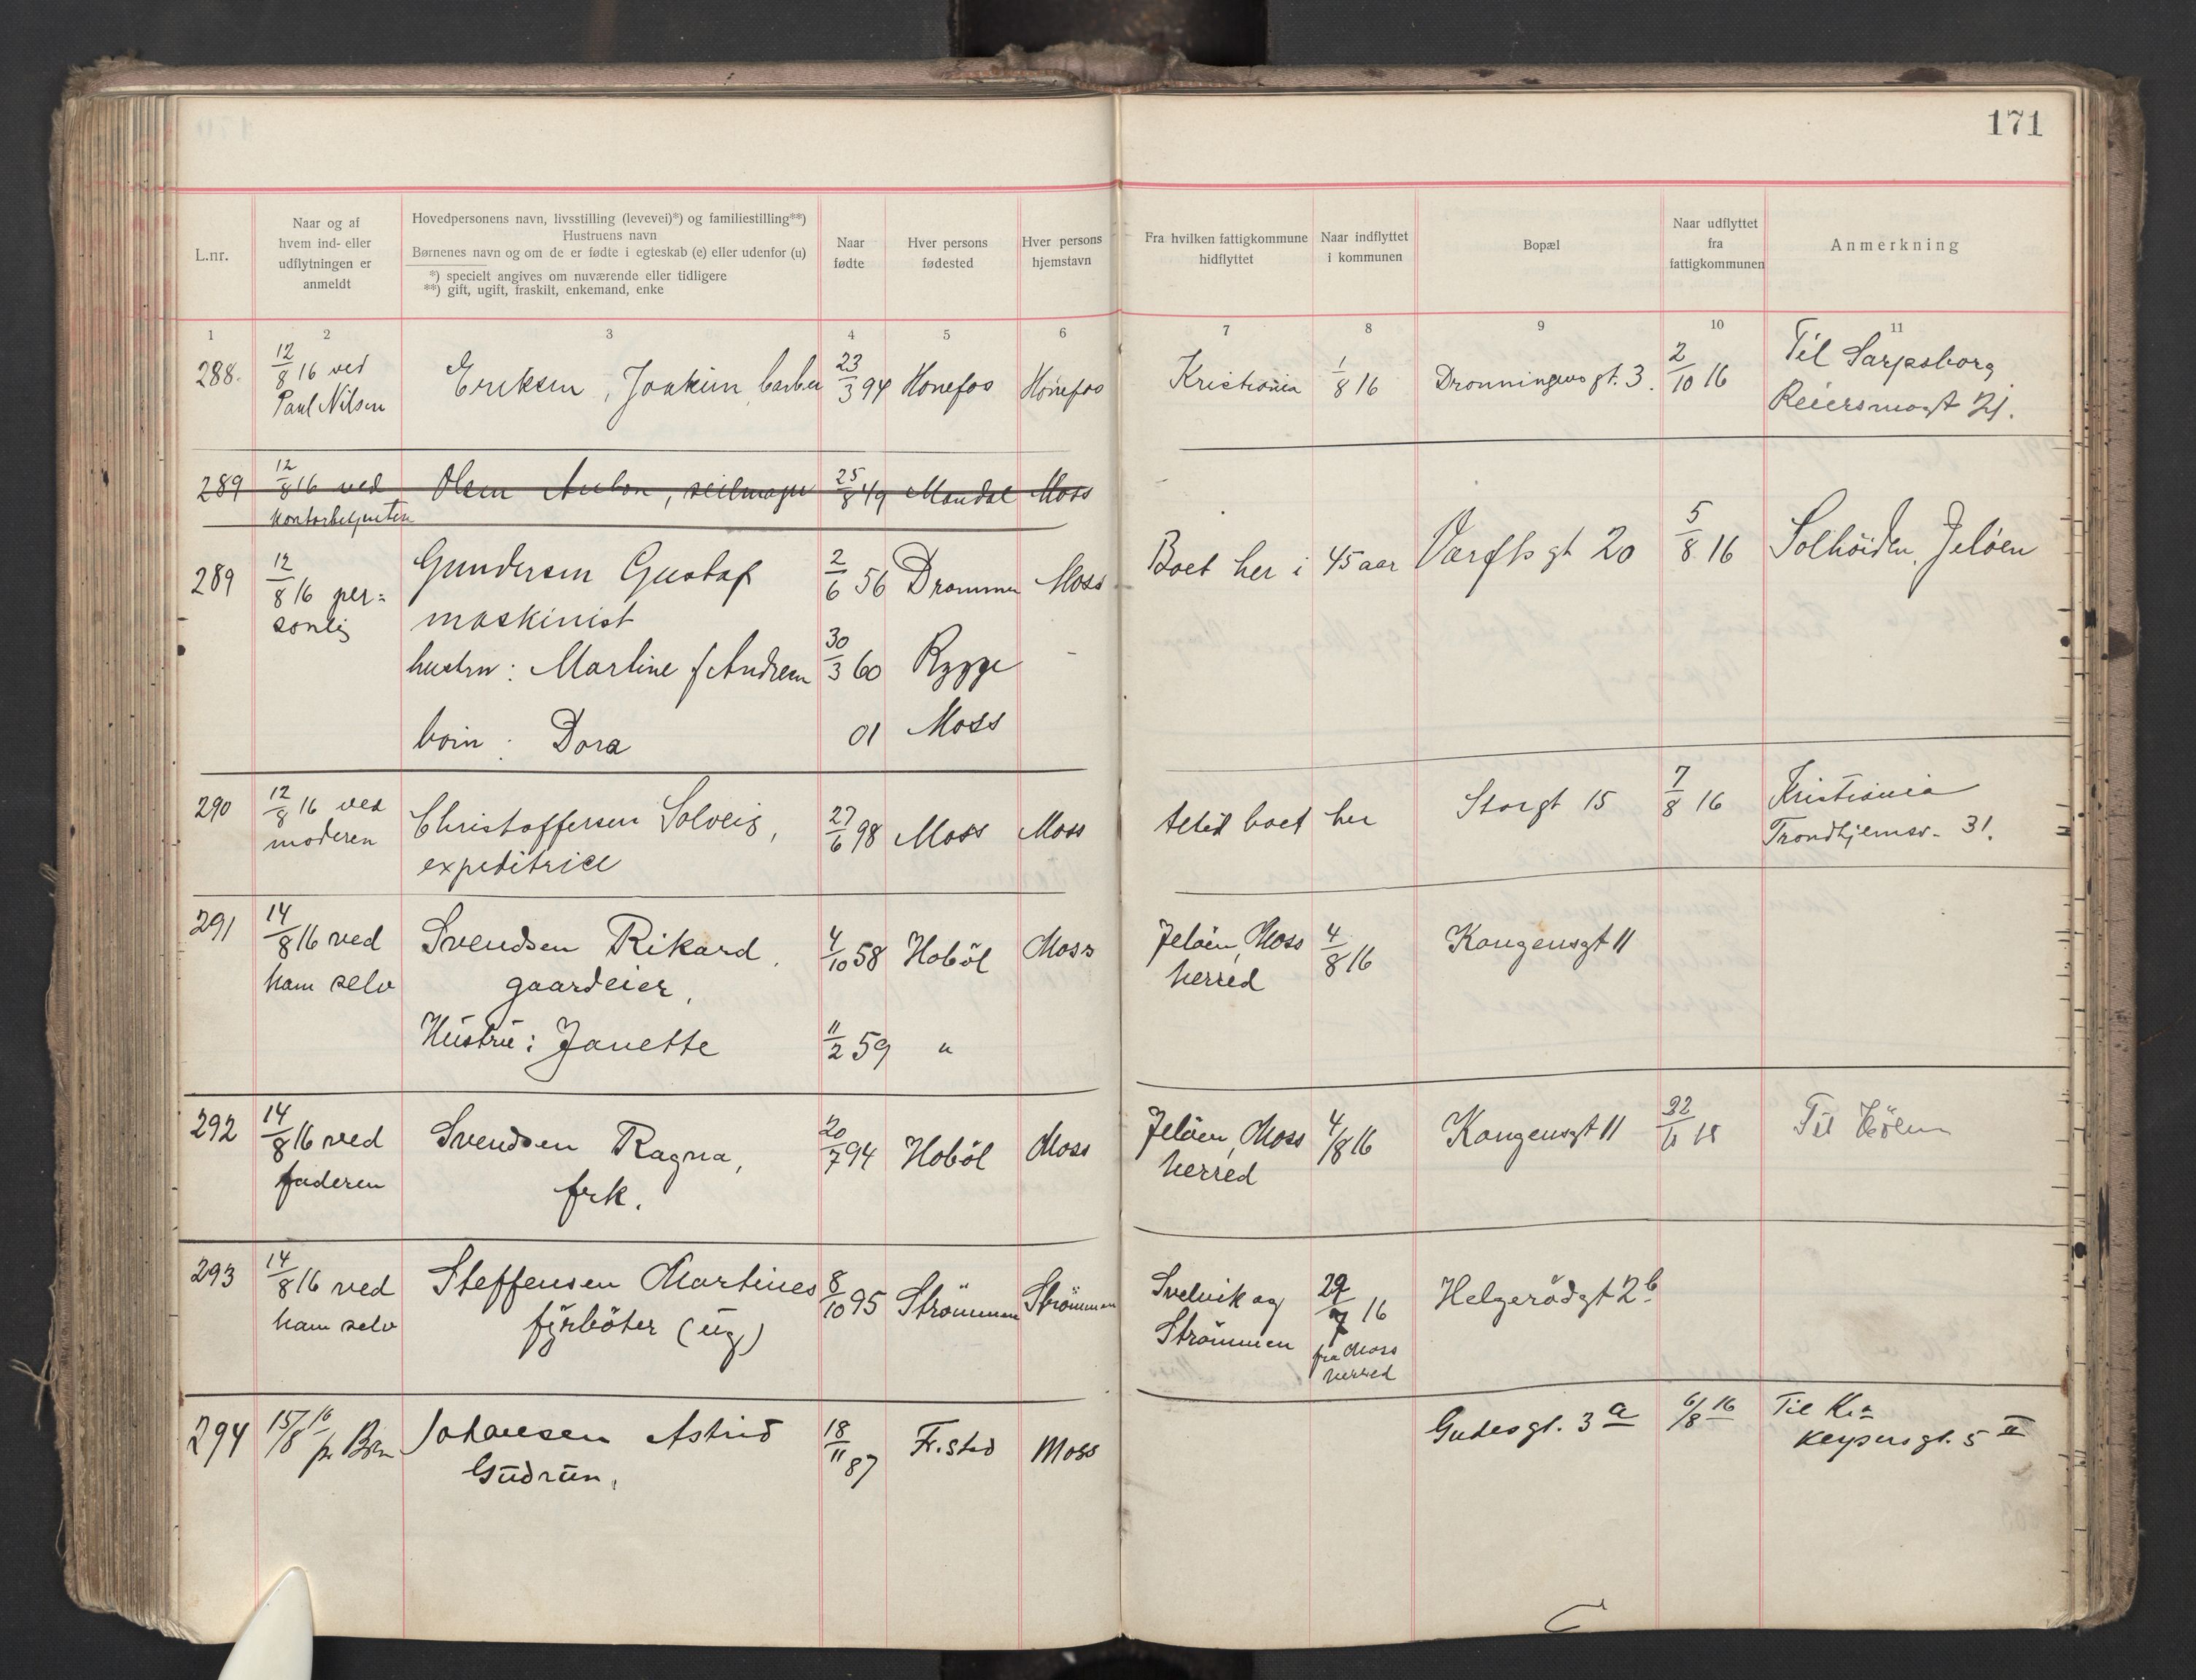 171
L.nr.
Naar og af
hvem ind- eller
udflytningen er
anmeldt
Hovedpersonens navn, livsstilling (levevei)*) og familiestilling**)
Hustruens navn
Børnenes navn og om de er fødte i egteskab (e) eller udenfor (u)
*) specielt angives om nuværende eller tidligere
**) gift, ugift, fraskilt, enkemand, enke
Naar
fødte
Hver persons
fødested
Hver persons
hjemstavn
Fra hvilken fattigkommune
hidflyttet
Naar indflyttet
i kommunen
Bopæl
Naar udflyttet
fra
fattigkommunen
Anmerkning
1 2 3 4 5 6 7 8 9 10 11
288. 12/8 16 ved Eriksen, Joakim barber 23/3 94 Hønefos Hønefos Kristiania 1/8 16 Dronningens gt. 3. 2/10 16 Til Sarpsborg
Paul Nilsen
289 12/8 16 ved Olsen Anton, seilmager 25/8 49 Mandal Moss
kontorbetjenten
289 12/8 16 per= Gundersen Gustaf 2/6 56 Drammen Moss Boet her i 45 aar Værftsgt 20 5/8 16 Solhöiden, Jelöen
sonlig maskinist
hustru: Martine f Andresen 30/3 60 Rygge -
barn: Dora 01 Moss
290 12/8 16 ved Christoffersen Solveig, 27/6 98 Moss Moss Altid boet her Storgt 15 7/8 16 Kristiania
moderen expeditrice Trondhjemsv. 31.
291 14/8 16 ved Svendsen Rikard, 4/10 58 Hoböl Moss Jelöen, Moss 4/8 16 Kongensgt 11
ham selv gaardeier, herred
Hustru: Janette 11/2 59 "
292 14/8 16 ved Svendsen Ragna, 20/7 94 Hoböl Moss Jelöen, Moss 4/8 16 Kongensgt 11 22/11 18 Til
faderen frk. herred
293 14/8 16 ved Steffensen Martinus 8/10 95 Strömmen Strömmen Svelvik og 29/7 16 Helgerödgt 2b.
ham selv fyrböter (ug) Strömmen fra Moss
herred
294 15/8 16 Johansen Astrid 18/11 87 Fr.stad Moss Gudesgt. 3a 6/8 16 Til Kra
pr Gudrun, Keysersgt. 5 II